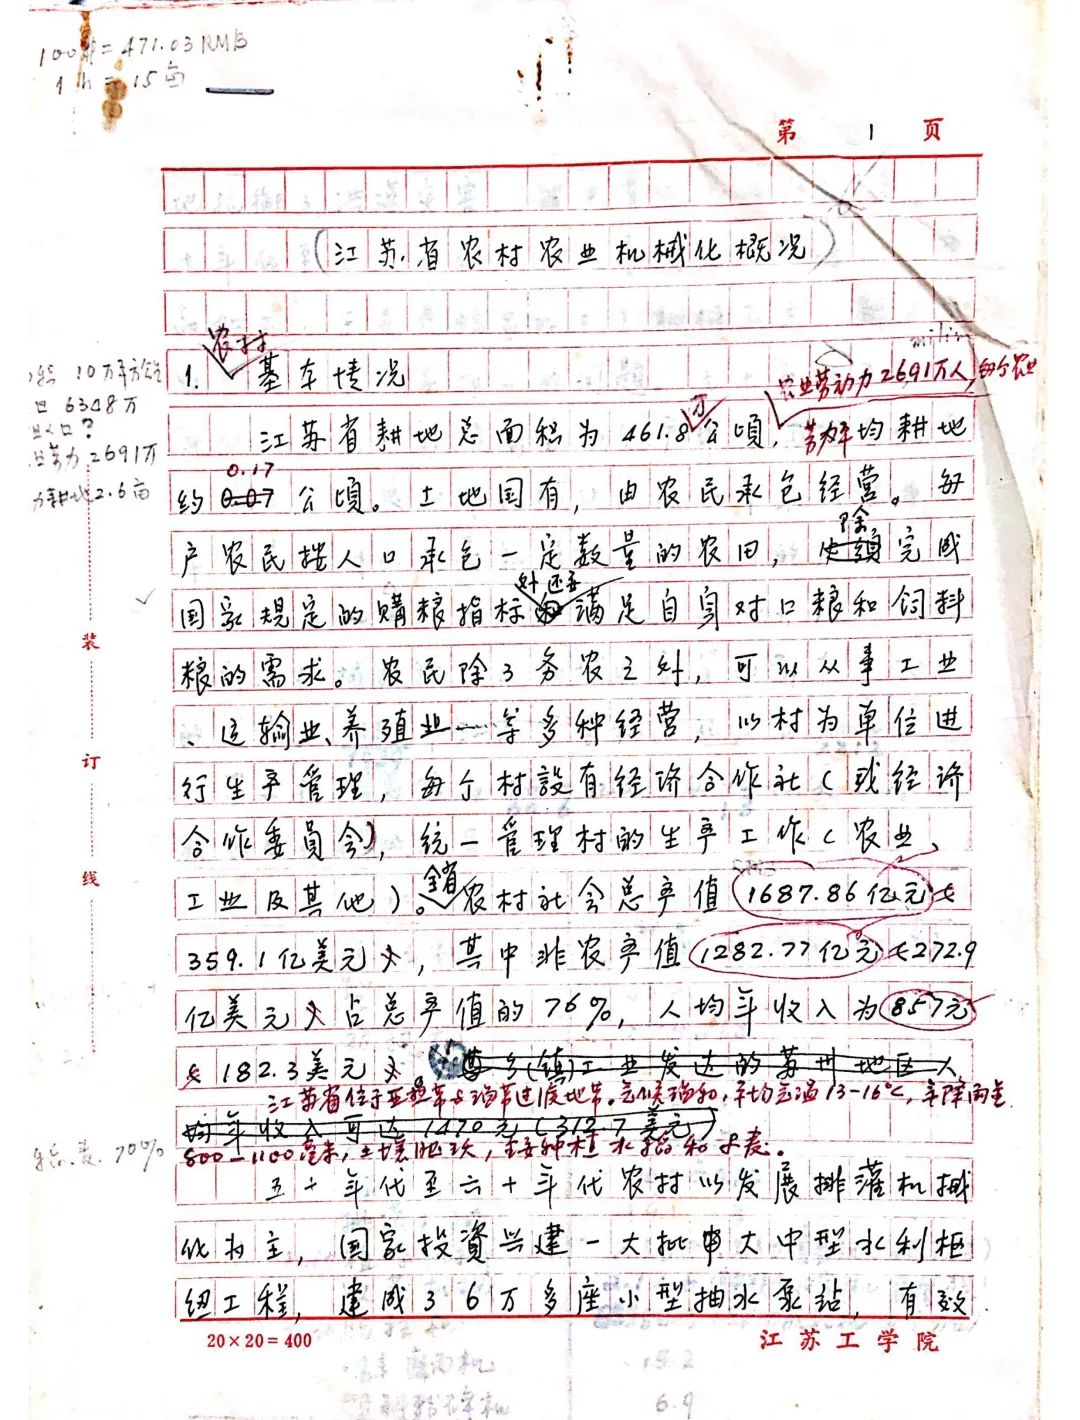 100$=471.03RMB
1h=15亩
第 1 页
(江苏省农村农业机械化概况)
农村
1. 基本情况
10万平方公里
口 6348万
人口?
劳力 2691万
耕地2.6亩
农业劳动力2691万人,每个农业
江苏省耕地总面积为461.8万公頃,劳力平均耕地
0.17
约 0.07 公頃。土地国有,由农民承包经营。每
除
户农民按人口承包一定数量的农田,必須完成
外还要
国家規定的購粮指标和满足自身对口粮和饲料
粮的需求。农民除了务农之外,可以从事工业
、运输业、养殖业……等多种经营,以村为单位进
行生产管理,每个村設有经济合作社(或经济
合作委員会),统一管理村的生产工作(农业、
全省
工业及其他)。农村社会总产值1687.86亿元(
359.1亿美元),其中非农产值1282.77亿元(272.9
亿美元)占总产值的76%,人均年收入为857元
(182.3美元)。 乡(镇)工业发达的苏州地区人
江苏省位于亚热带与温带过渡地带。气候温和,年均气温13-16°C,年降雨量
均年收入可达1470元(312.7美元)
800-1100毫米,土壤肥沃,主要种植水稻和小麦。
稻、麦、70%
五十年代至六十年代农村以发展排灌机械
化为主,国家投資兴建一大批大中型水利枢
纽工程,建成36万多座小型抽水泵站,有效
装
订
线
20×20=400
江苏工学院